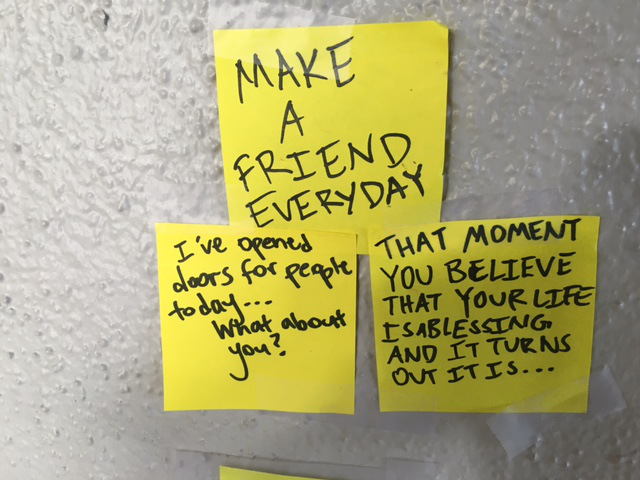 MAKE
A
FRIEND
EVERYDAY
I've opened
doors for people
today...
What about
you?
THAT MOMENT
YOU BELIEVE
THAT YOUR LIFE
ISABLESSING
AND IT TURNS
OUT IT IS...